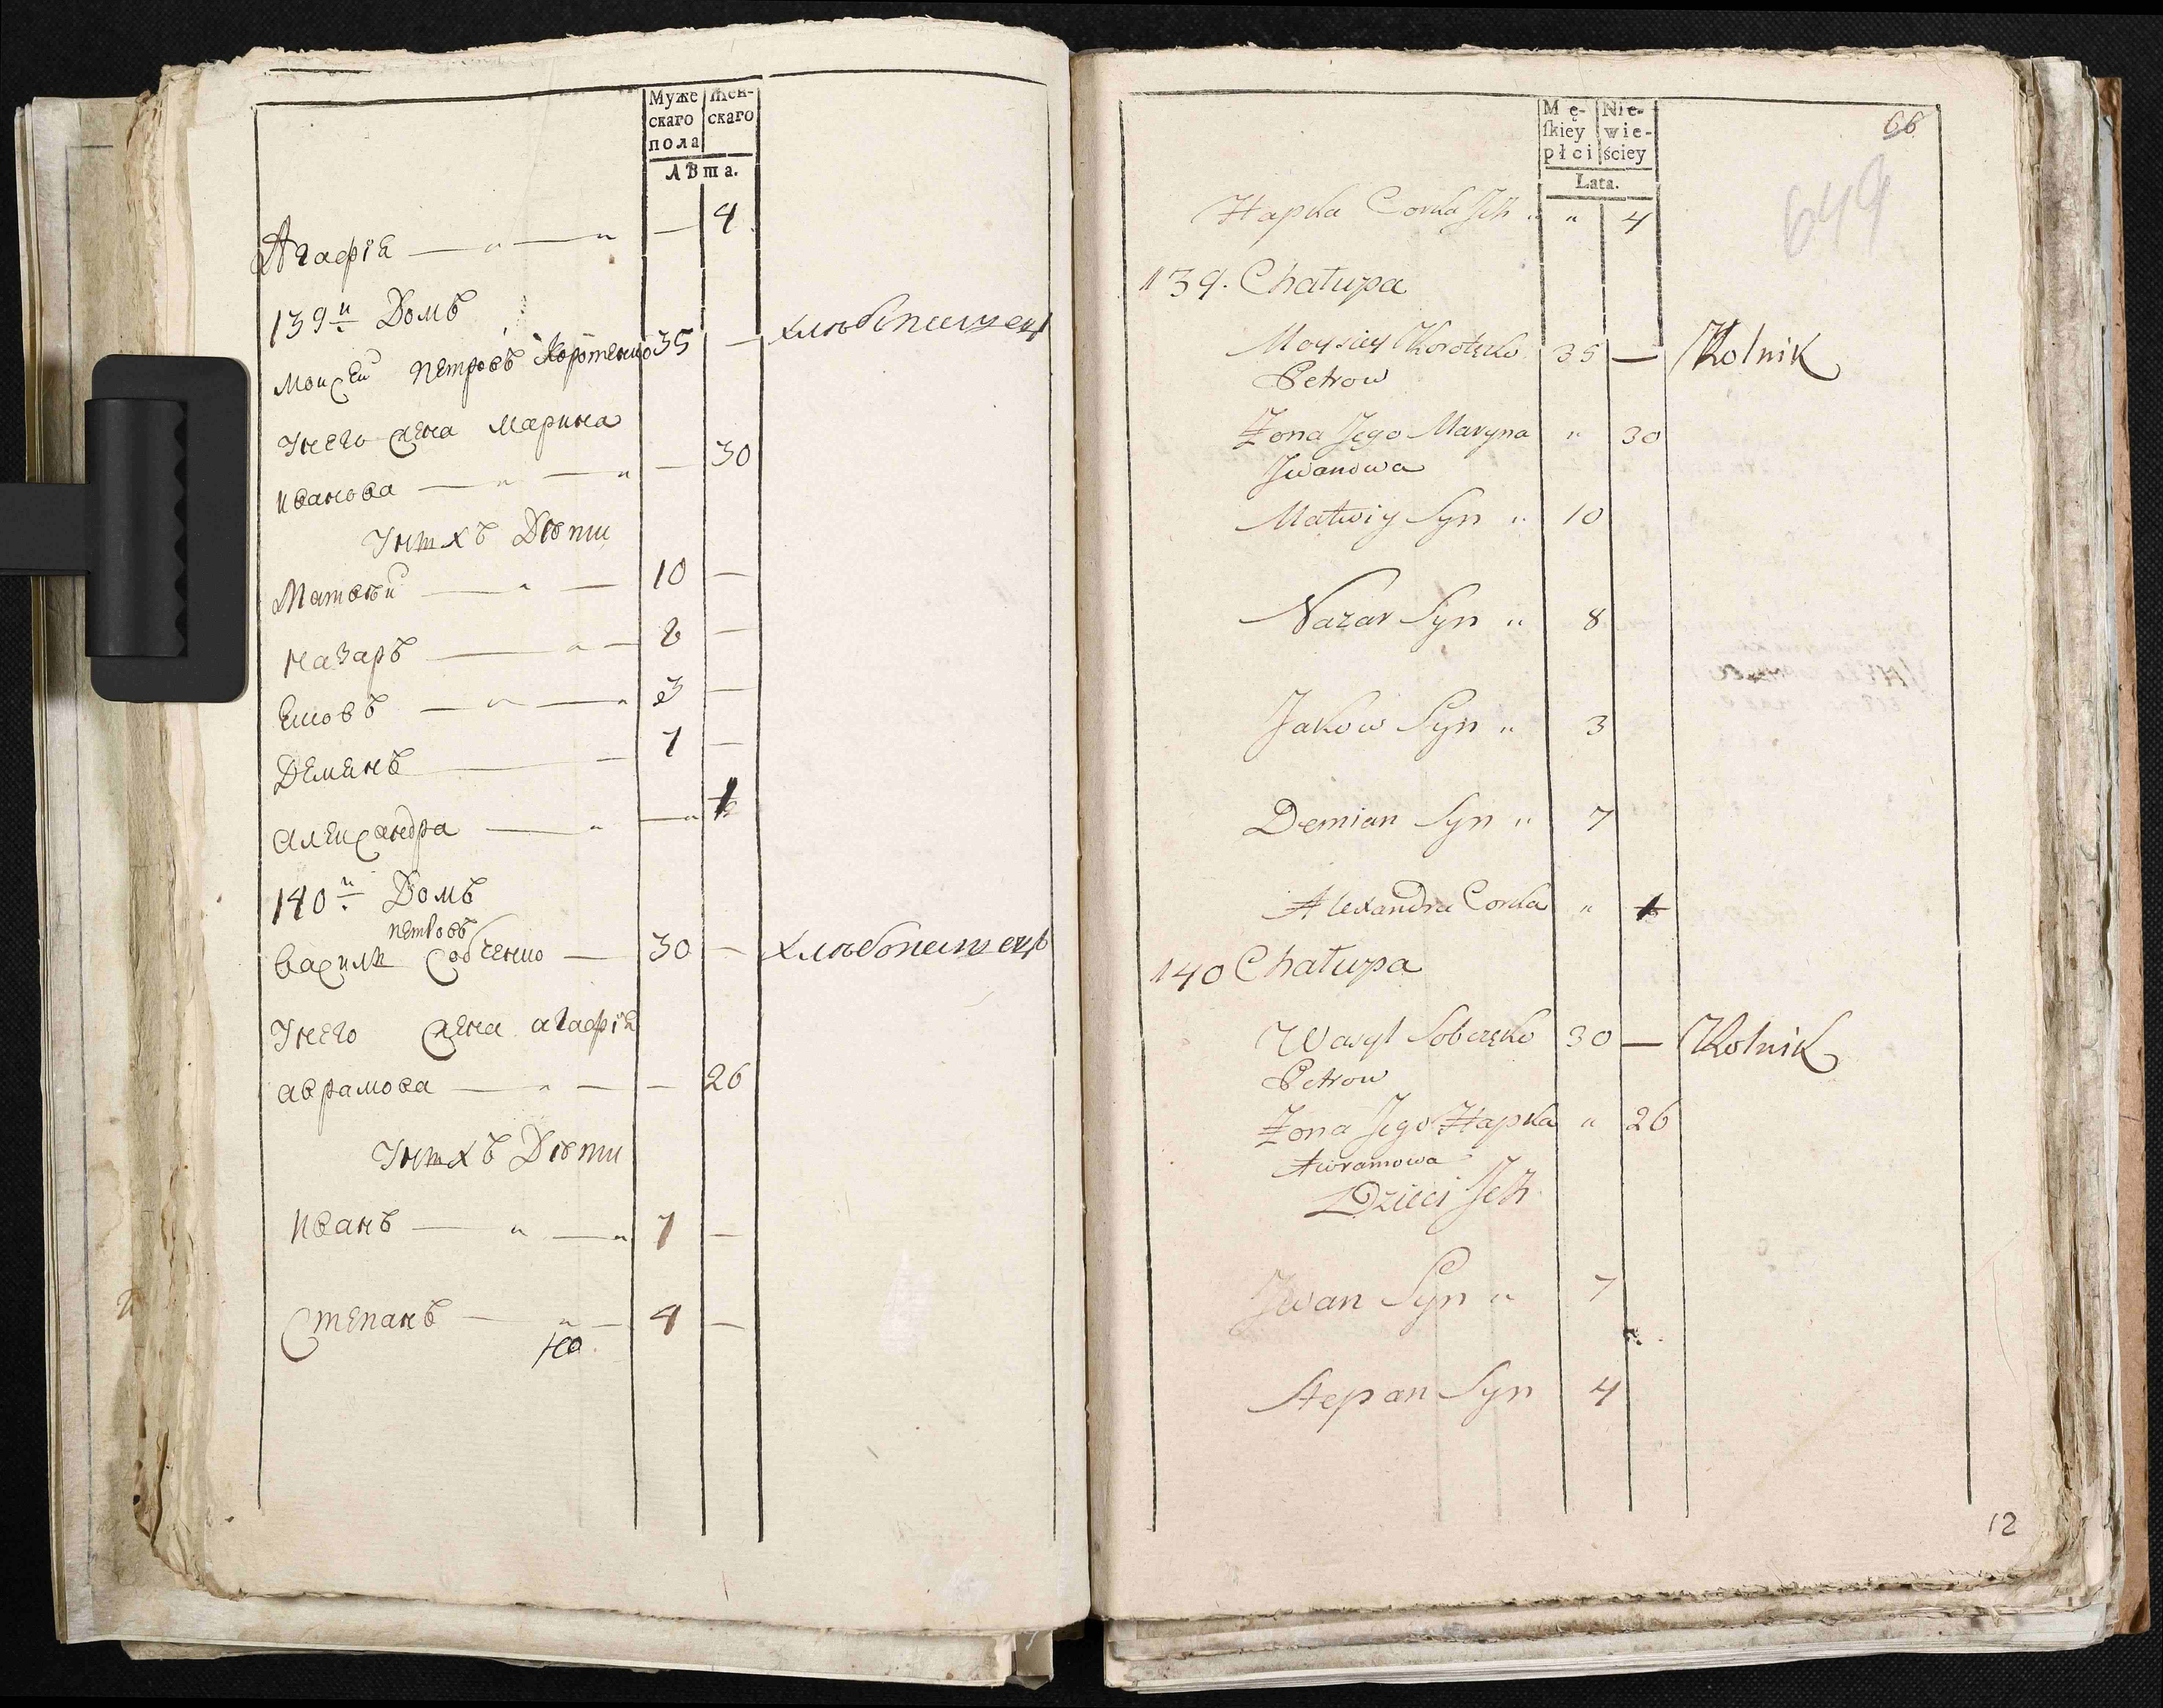 Муже
скаго
пола
жен-
скаго
лѣта.
Агафія — „ — „ — 4
139й Домъ
Моисей Петровъ Коротенко 35 — хлѣбопашецъ
У него жена Марина
Иванова — „ — „ — 30
У нихъ Дѣти
Матвѣй — „ — 10 —
Назаръ — „ — 8 —
Яковъ — „ — „ 3 —
Демянъ — 7 —
Александра — „ — „ 1
140й Домъ
Петровъ
Василь Собченко — 30 — хлѣбопашецъ
У него жена Агафія
Аврамова — „ — — 26
У нихъ Дѣти
Иванъ — „ — „ 7 —
Степанъ — „ — 4 —
Mę-
ſkiey
płci
Nie-
wie-
ściey
Lata.
66
649
Hapka Corka Jch „ „ 4
139. Chałupa
Moysiey Korotęko 35 — Rolnik
Petrow
Żona Jego Maryna „ 30
Jwanowa
Matwiy Syn „ 10
Nazar Syn „ 8
Jakow Syn „ 3
Demian Syn „ 7
Alexandra Corka „ 1
140 Chałupa
Wasyl Sobczęko 30 — Rolnik
Petrow
Żona Jego Hapka „ 26
Awramowa
Dzieci Jch
Jwan Syn „ 7
Stepan Syn 4
12